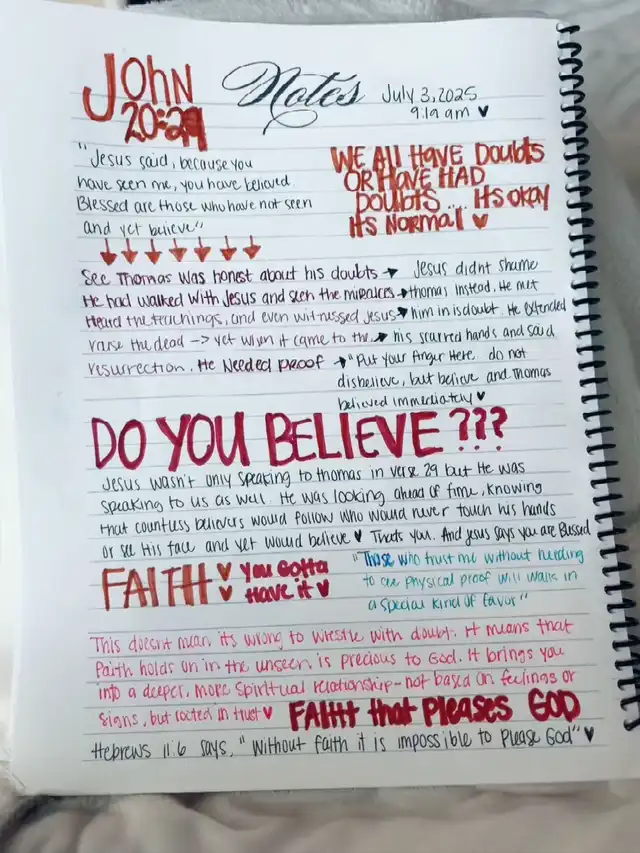 John
20:29
Notes
July 3, 2025
9:19 am ♥
"Jesus said, because you
have seen me, you have believed
Blessed are those who have not seen
and yet believe"
WE All HAVE Doubts
OR HAVE HAD
Doubts .... Its OKAY
Its NORMAl ♥
See Thomas was honest about his doubts →
He had walked with Jesus and seen the miracles →
Heard the teachings, and even witnessed Jesus →
raise the dead —> yet when it came to the →
resurrection. He Needed proof →
Jesus didnt shame
thomas instead. He met
him in isdoubt. He extended
his scarred hands and said
"Put your finger Here. do not
disbelieve, but believe and Thomas
believed immediately ♥
DO YOU BELIEVE ???
Jesus wasn't only speaking to thomas in verse 29 but He was
speaking to us as well. He was looking ahead of time, knowing
that countless believers would follow who would never touch his hands
or see His face and yet would believe ♥ Thats you. And Jesus says you are Blessed
FAITH ♥ You Gotta
♥ Have it ♥
"Those who trust me without needing
to see physical proof will walk in
a special kind of favor"
This doesnt mean its wrong to wrestle with doubt. it means that
faith holds on in the unseen is precious to God. it brings you
into a deeper, more spiritual relationship - not based on feelings or
signs, but rooted in trust ♥ FAItH that Pleases GOD
Hebrews 11:6 says, "Without faith it is impossible to please God" ♥